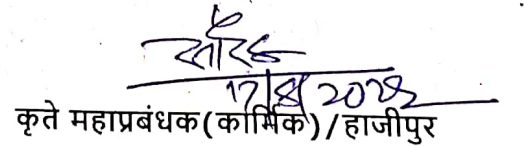 सौरभ
17/8/2022
कृते महाप्रबंधक(कार्मिक)/हाजीपुर